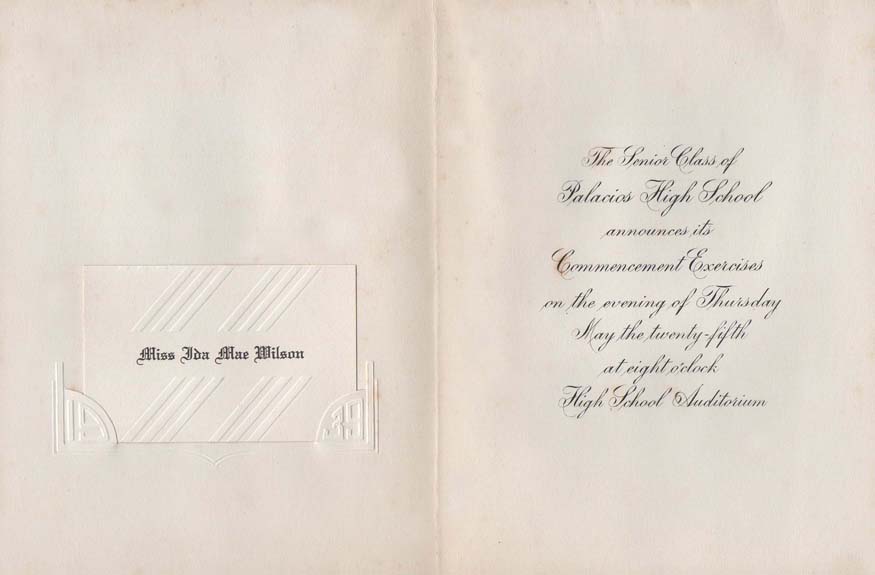 Miss Ida Mae Wilson
The Senior Class of
Palacios High School
announces its
Commencement Exercises
on the evening of Thursday
May the twenty-fifth
at eight o'clock
High School Auditorium